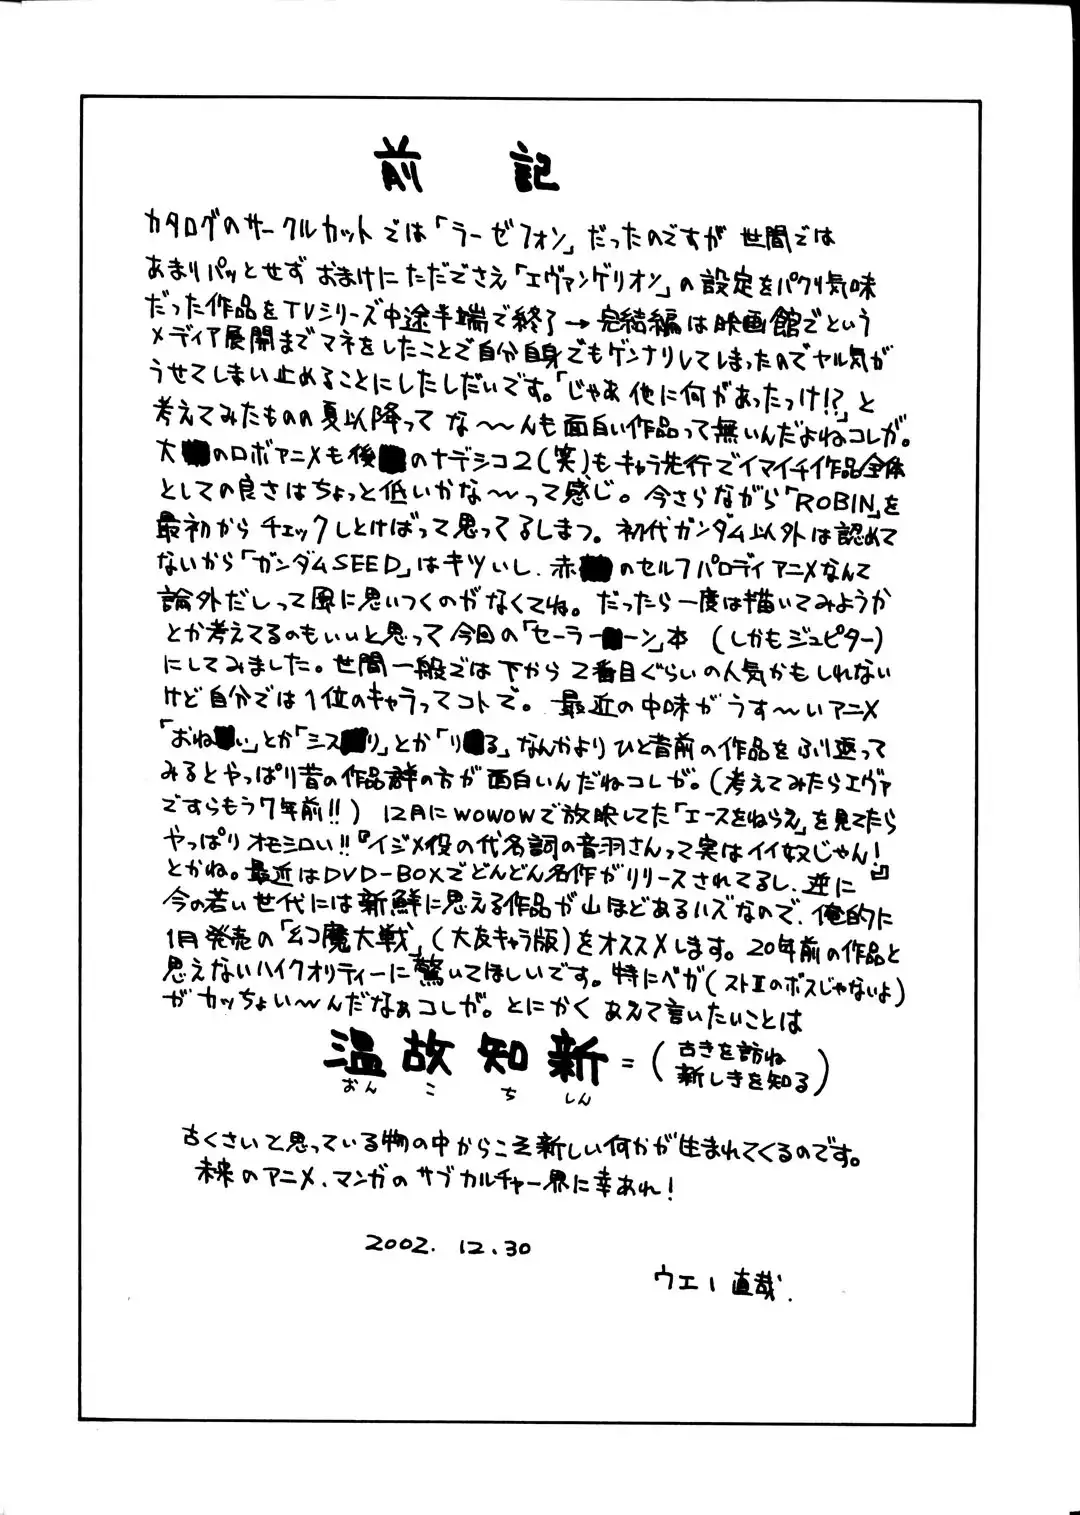 前記
カタログのサークルカットでは「ラーゼフォン」だったのですが世間では
あまりパッとせずおまけにただでさえ「エヴァンゲリオン」の設定をパクり気味
だった作品をTVシリーズ中途半端で終了→完結編は映画館でという
メディア展開までマネをしたことで自分自身でもゲンナリしてしまったのでヤル気が
うせてしまい止めることにしたしだいです。「じゃあ他に何があったっけ!?」と
考えてみたものの夏以降ってな〜〜んも面白い作品って無いんだよねコレが。
大 のロボアニメも後 のナデシコ2(笑)もキャラ先行でイマイチ作品全体
としての良さはちょっと低いかな〜〜って感じ。今さらながら「ROBIN」を
最初からチェックしとけばって思ってるしまつ。初代ガンダム以外は認めて
ないから「ガンダムSEED」はキツいし、赤 のセルフパロディアニメなんて
論外だしって風に思いつくのがなくてね。だったら一度は描いてみようか
とか考えてるのもいいと思って今回の「セーラー ーン」本(しかもジュピター)
にしてみました。世間一般では下から2番目ぐらいの人気かもしれない
けど自分では1位のキャラってコトで。最近の中味がうす〜〜いアニメ
「おね い」とか「シス リ」とか「リ る」なんかよりひと昔前の作品をふり返って
みるとやっぱり昔の作品群の方が面白いんだねコレが。(考えてみたらエヴァ
ですらもう7年前!!) 12月にWOWOWで放映してた「エースをねらえ」を見てたら
やっぱりオモシロい!!『イジメ役の代名詞の音羽さんって実はイイ奴じゃん!』
とかね。最近はDVD-BOXでどんどん名作がリリースされてるし、逆に
今の若い世代には新鮮に思える作品が山ほどあるハズなので、俺的に
1月発売の「幻魔大戦」(大友キャラ版)をオススメします。20年前の作品と
思えないハイクオリティーに驚いてほしいです。特にベガ(ストⅡのボスじゃないよ)
がカッちょい〜〜んだなぁコレが。とにかくあえて言いたいことは
温故知新=(古きを訪ね
新しきを知る)
おんこちしん
古くさいと思っている物の中からこそ新しい何かが生まれてくるのです。
未来のアニメ、マンガのサブカルチャー界に幸あれ!
2002.12.30
ウエー直哉.